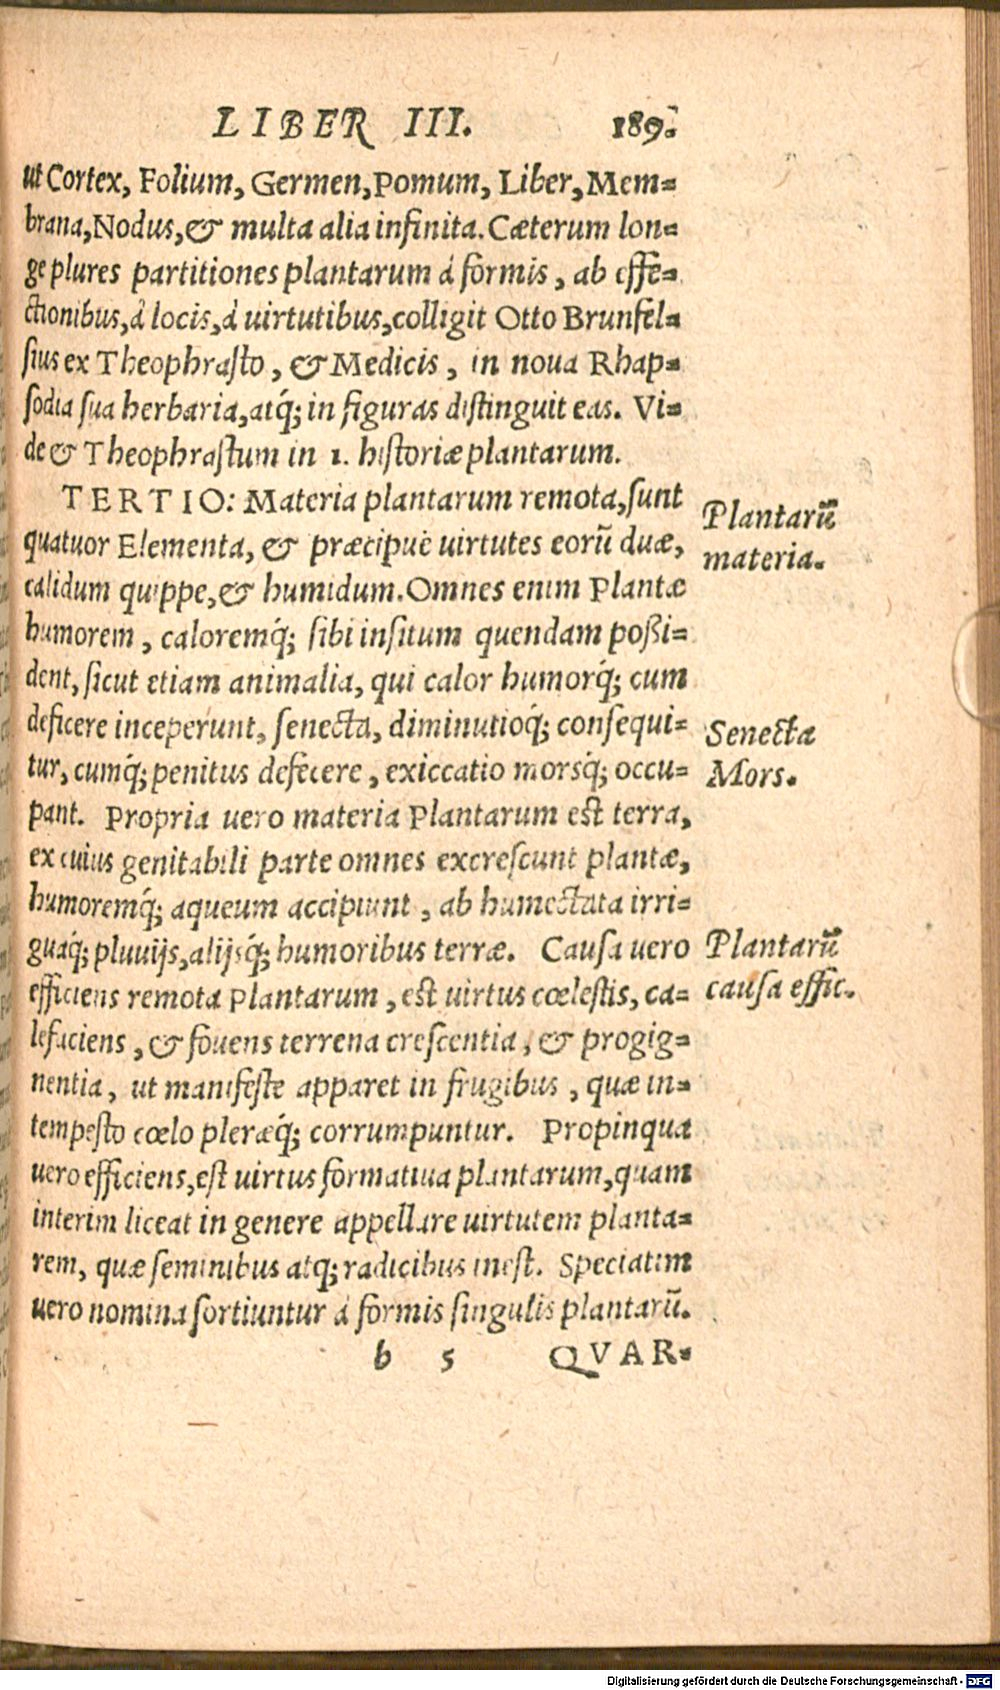 LIBER III. 189.
ut Cortex, Folium, Germen, Pomum, Liber, Mem=
brana, Nodus, & multa alia infinita. Cæterum lon=
ge plures partitiones plantarum à formis, ab effe=
ctionibus, à locis, à uirtutibus, colligit Otto Brunfel=
sius ex Theophrasto, & Medicis, in noua Rhap=
sodia sua herbaria, atq́; in figuras distinguit eas. Vi=
de & Theophrastum in 1. historiæ plantarum.
TERTIO: Materia plantarum remota, sunt
quatuor Elementa, & præcipuè uirtutes eorũ duæ,
calidum quippe, & humidum. Omnes enim Plantæ
humorem, caloremq́; sibi insitum quendam poßi=
dent, sicut etiam animalia, qui calor humorq́; cum
deficere inceperunt, senecta, diminutioq́; consequi=
tur, cumq́; penitus defecere, exiccatio morsq́; occu=
pant. Propria uero materia Plantarum est terra,
ex cuius genitabili parte omnes excrescunt plantæ,
humoremq́; aqueum accipiunt, ab humectata irri=
guaq́; pluuijs, alijsq́; humoribus terræ. Causa uero
efficiens remota Plantarum, est uirtus cœlestis, ca=
lefaciens, & fouens terrena crescentia, & progig=
nentia, ut manifeste apparet in frugibus, quæ in=
tempesto cœlo pleræq́; corrumpuntur. Propinqua
uero efficiens, est uirtus formatiua plantarum, quam
interim liceat in genere appellare uirtutem planta=
rem, quæ seminibus atq; radicibus inest. Speciatim
uero nomina sortiuntur à formis singulis plantarũ.
b 5 QVAR=
Plantarũ
materia.
Senecta
Mors.
Plantarũ
causa effic.
Digitalisierung gefördert durch die Deutsche Forschungsgemeinschaft - DFG